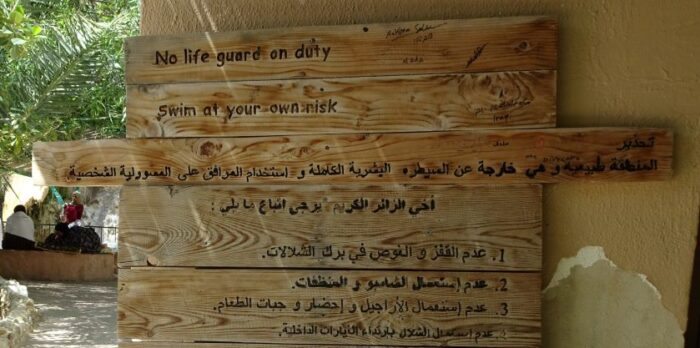 No life guard on duty
Swim at your own risk
تحذير
المنطقة طبيعية و هي خارجة عن السيطرة البشرية الكاملة و إستخدام المرافق على المسوولية الشخصية
أخي الزائر الكريم يرجى اتباع ما يلي :
1. عدم القفز و الغوص في برك الشلالات.
2. عدم إستعمال الشامبو و المنظفات.
3. عدم إستعمال الأراجيل و إحضار و جبات الطعام.
عدم إستعمال الشلال بارتداء الثيارات الداخلية.